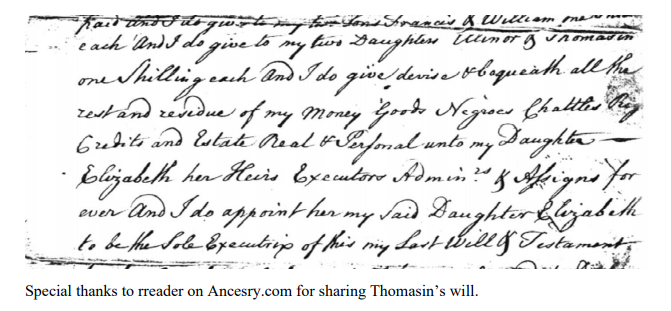 paid and I do give to my two Sons Francis & William one
each And I do give to my two Daughters Ellinor & Thomasin
one Shilling each And I do give devise & bequeath all the
rest and residue of my Money Goods Negroes Chattles
Credits and Estate Real & Personal unto my Daughter
Elizabeth her Heirs Executors Admin.rs & Assigns for
ever And I do appoint her my Said Daughter Elizabeth
to be the Sole Executrix of this my Last Will & Testament
Special thanks to rreader on Ancesry.com for sharing Thomasin’s will.